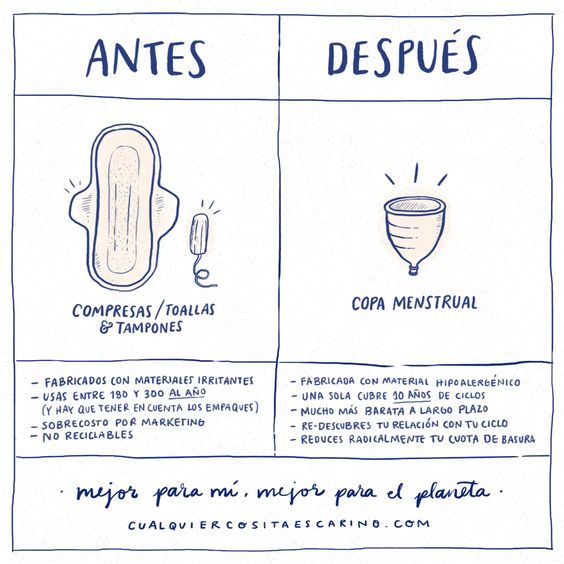 ANTES
DESPUÉS
COMPRESAS/TOALLAS
& TAMPONES
COPA MENSTRUAL
- FABRICADOS CON MATERIALES IRRITANTES
- USAS ENTRE 180 Y 300 AL AÑO
(Y HAY QUE TENER EN CUENTA LOS EMPAQUES)
- SOBRECOSTO POR MARKETING
- NO RECICLABLES
- FABRICADA CON MATERIAL HIPOALERGÉNICO
- UNA SOLA CUBRE 10 AÑOS DE CICLOS
- MUCHO MÁS BARATA A LARGO PLAZO
- RE-DESCUBRES TU RELACIÓN CON TU CICLO
- REDUCES RADICALMENTE TU CUOTA DE BASURA
· mejor para mí, mejor para el planeta ·
CUALQUIERCOSITAESCARINO.COM